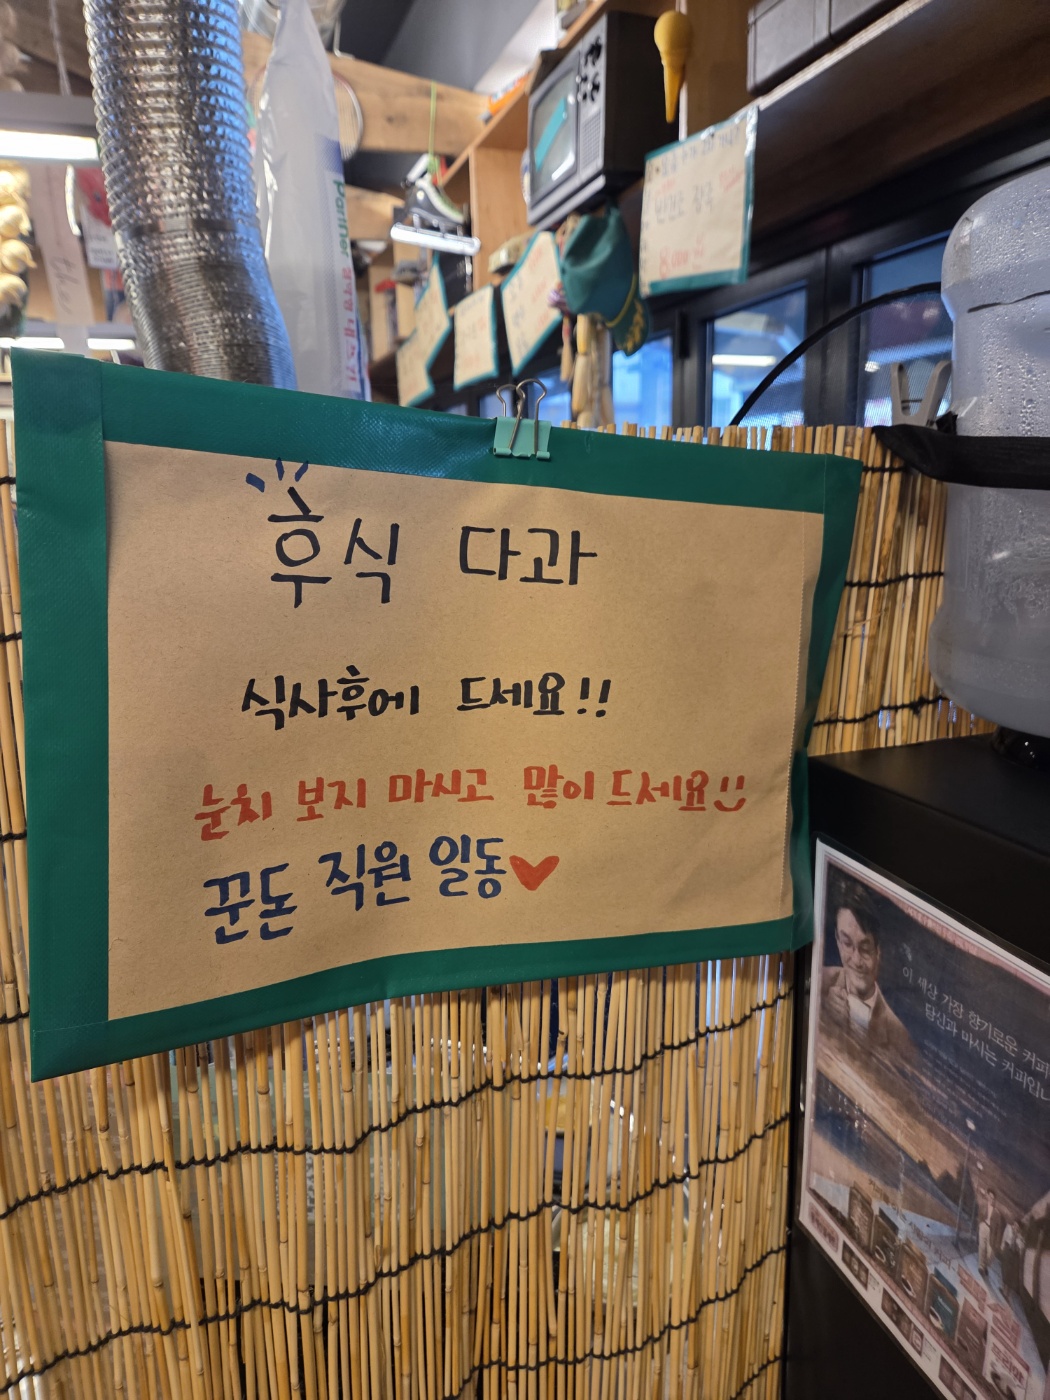 후식 다과
식사후에 드세요!!
눈치 보지 마시고 많이 드세요!!
꾼돈 직원 일동♥
partner
이 세상 가장 향기로운 커피
당신과 마시는 커피입니